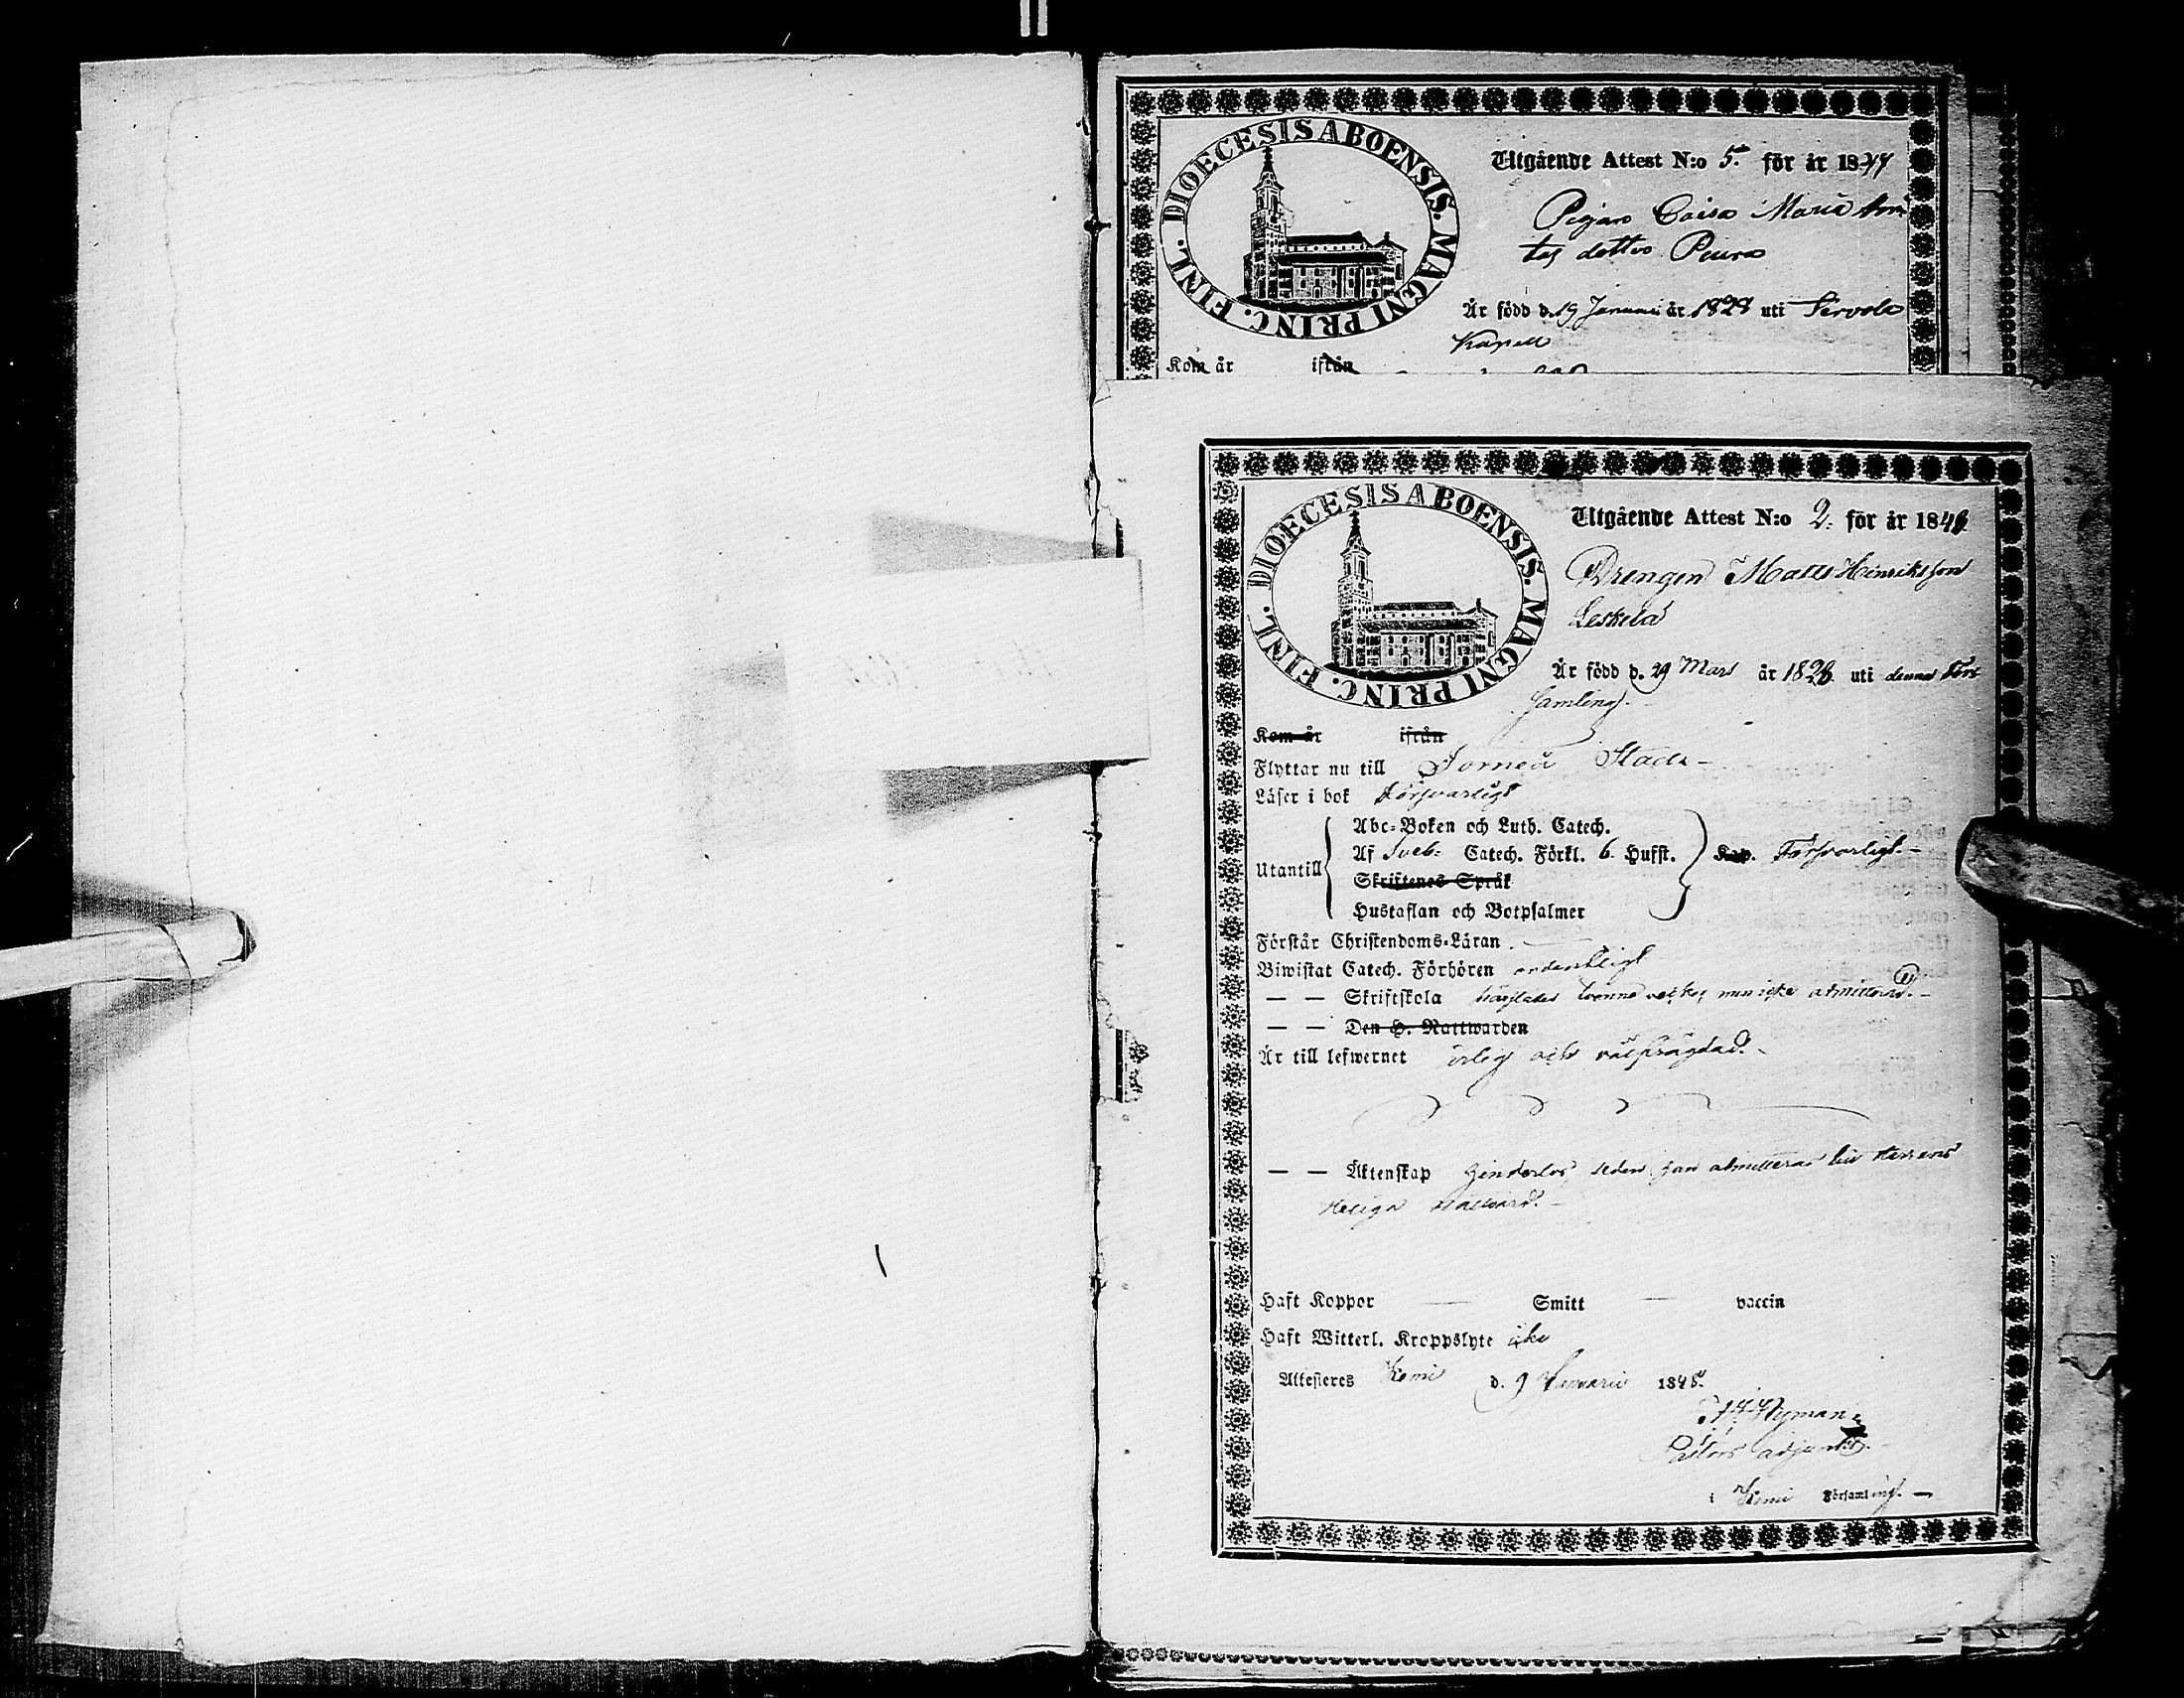 DIOECESIS ABOENSIS. MAGNI PRINC. FINL.
Utgående Attest N:o 5. för år 18
Pigan Caisa Maria
dotter Peura
Är född d. 19 Januari år 1828 uti Tervola
Kapell
Kom år ifrån
DIOECESIS ABOENSIS. MAGNI PRINC. FINL.
Utgående Attest N:o 2. för år 1848
Drengen Matts Henriksson
Leskelä
Är född d. 29 Mars år 1828 uti denna För
samling.
Kom år ifrån
Flyttar nu till Torneå Stad. –
Läser i bok Försvarligt
Utantill
Abc-Boken och Luth. Catech.
Af Sveb: Catech. Förkl. 6. Hufst. Kap. Försvarligt. –
Skriftenes Språk
Hustaflan och Botpsalmer
Förstår Christendoms-Läran
Biwistat Catech. Förhören ordentligt
— — Skriftskola tvenne men icke admitterad. –
— — Den H. Nattwarden
Är till lefwernet ärlig och välfrägdad. –
— — Äktenskap hinderlös, sedan han admitteras till Herrens
Heliga Nattvard. –
Haft Koppor — Smitt — vaccin
Haft Witterl. Kroppslyte icke
Attesteres Kemi d. 9 Januarii 1848.
Nyman
Pastors adjunct.
i Kemi Församling. —